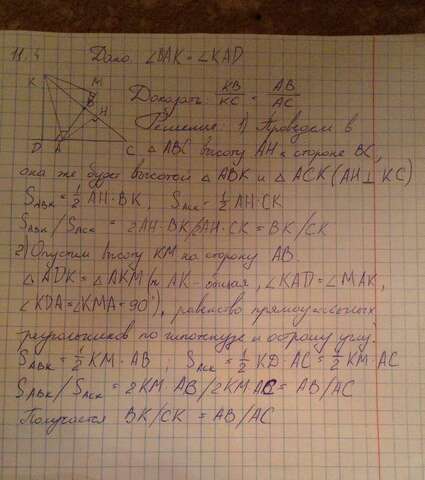 11.4 Дано: ∠BAK = ∠KAD
K M
Доказать: KB/KC = AB/AC
B
H
Решение: 1) Проведем в
D A C △ ABC высоту AH к стороне BC,
она же будет высотой △ ABK и △ ACK (AH ⊥ KC)
S_ABK = 1/2 AH·BK, S_ACK = 1/2 AH·CK
S_ABK / S_ACK = 2AH·BK/2AH·CK = BK/CK
2) Опустим высоту KM на сторону AB.
△ ADK = △ AKM (т. AK - общая, ∠KAD = ∠MAK,
∠KDA = ∠KMA = 90°), равенство прямоугольных
треугольников по гипотенузе и острому углу.
S_ABK = 1/2 KM·AB, S_ACK = 1/2 KD·AC = 1/2 KM·AC
S_ABK / S_ACK = 2KM·AB/2KM·AC = AB/AC
Получается BK/CK = AB/AC